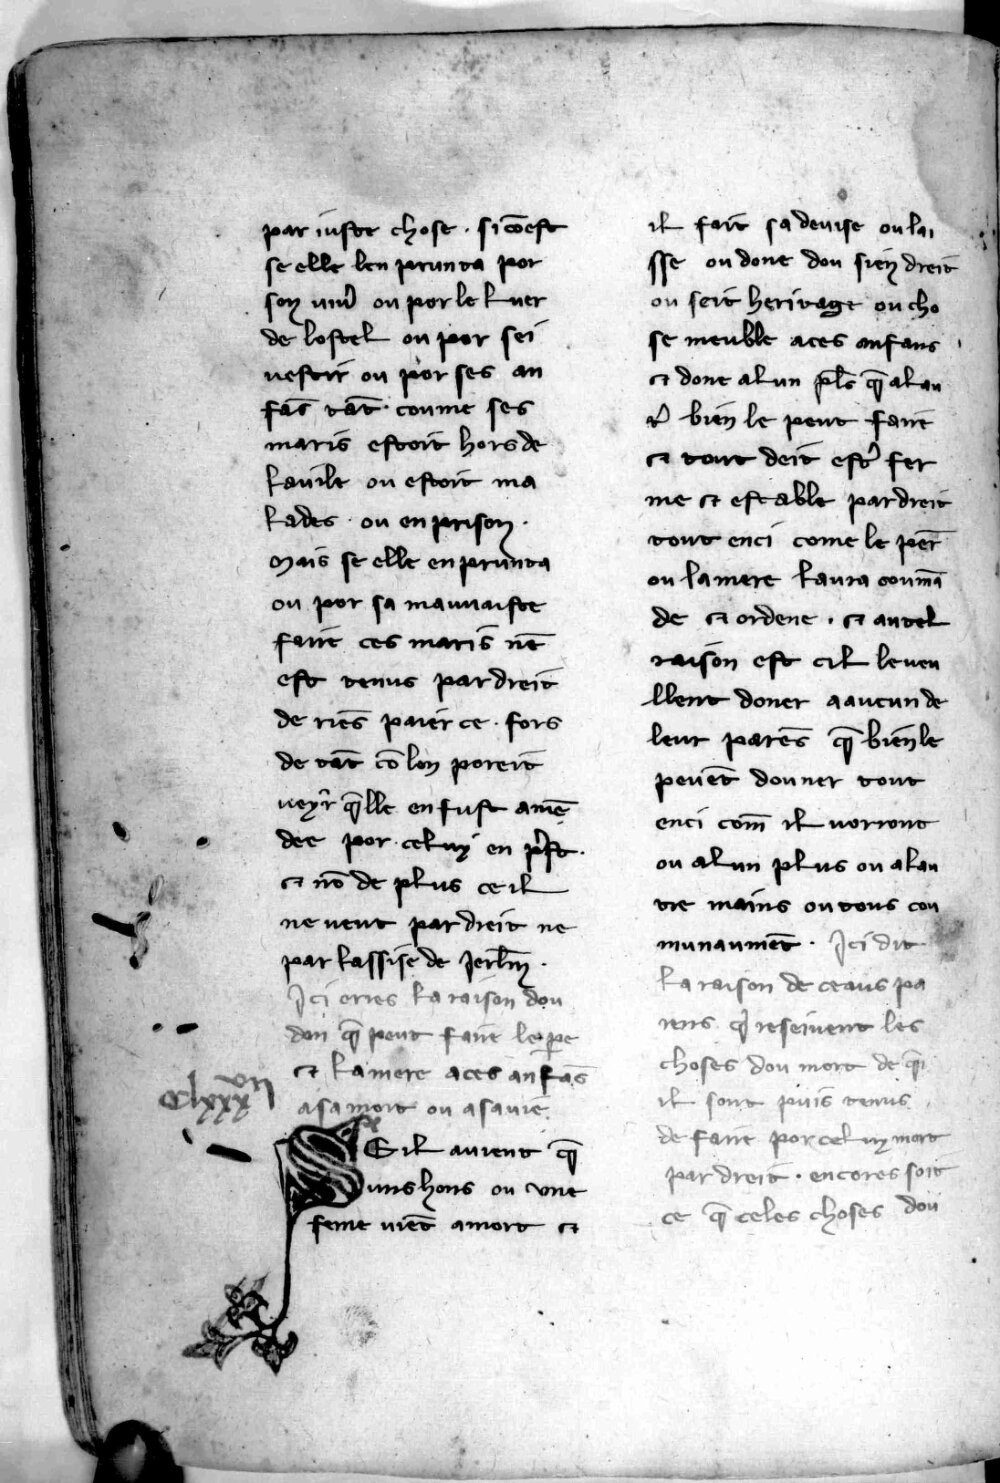 par iuste chose · si cōest
se elle len prunta por
son uiure ou por le luer
de lostel ou por sei
uestir ou por ses an
fās tāt · coume ses
maris estoit hors de
la uile ou estoit ma
lades · ou en prison ·
Mais se elle enprunta
ou por sa mauuaiste
faire ces maris nē
est tenus par dreit
de riēs paier ce · fors
de tāt cō lon poreit
ueyr q̄lle en fust amē
dee por · celuy en prest ·
et nō de plus ce il
ne veut par dreit ne
par lassise de Jerlm̄ ·
Ici orres la raison dou
don q̄ peut faire le pere
et la mere a ces anfās
a sa mort ou a sa uie
clxxxvii
SE il auient q̄
uns hons ou une
feme uiēt a mort et
il fait sa deuise ou lai
sse ou done dou sien dreit
ou seit heritage ou cho
se meuble a ces anfans
et done a lun pl̄s q̄ a lau
tre bien le peut faire
et tout deit estre fer
me et estable par dreit
tout enci come le pere
ou la mere laura coumā
de et ordene · et autel
raison est cil le ueu
llent doner a aucun de
leur parēs q̄ bien le
peuēt douner tout
enci com̄ il uorront
ou a lun plus ou a lau
tre mains ou tous cou
munaumēt · Ici dit
la raison de ceaus pa
rens qui reseiuent les
choses dou mort de q̄i
il sont puis tenus
de faire por celuy mort
par dreit · encores soit
ce q̄ celes choses dou